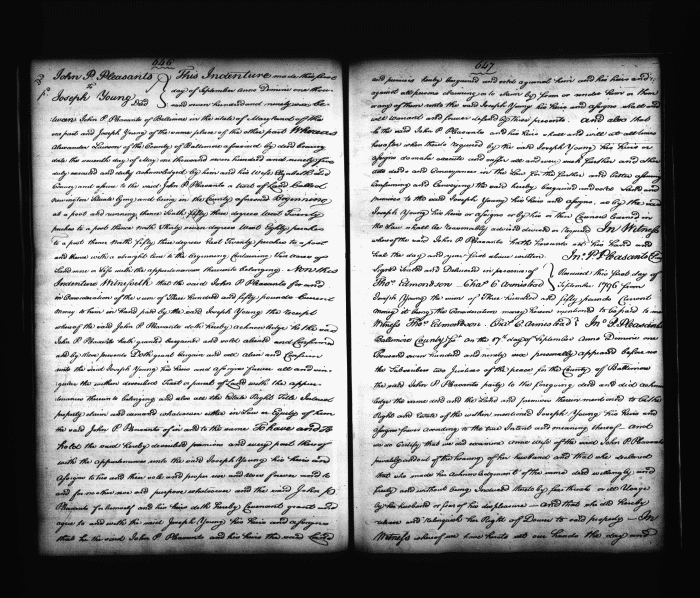 646
John P. Pleasants } This Indenture made this first
To day of September Anno Domini one thou
Joseph Young Deed sand seven hundred and ninety six be
tween John P. Pleasants of Baltimore in the State of Maryland of the
one part and Joseph Young of the same place of the other part Whereas
Alexander of the County of Baltimore aforesaid by deed bearing
date the seventh day of May one thousand seven hundred and ninety five
duly executed and duly acknowledged by him and his wife Elizabeth did
Convey and assure to the said John P. Pleasants a tract of Land Called
lying and being in the County aforesaid Beginning
at a post and running thence South fifty three degrees West Twenty
perches to a post thence North Thirty seven degrees West Eighty perches
to a post thence North fifty three degrees East Twenty perches to a post
and thence with a straight line to the beginning Containing Ten acres of
Land more or less with the appurtenances thereunto belonging Now this
Indenture Witnesseth that the said John P. Pleasants for and
in Consideration of the sum of Three hundred and fifty pounds Current
Money to him in hand paid by the said Joseph Young the receipt
whereof the said John P. Pleasants doth hereby acknowledge he the said
John P. Pleasants hath granted bargained and sold aliened and Confirmed
and by these presents Doth grant bargain and sell alien and Confirm
unto the said Joseph Young his heirs and assigns forever all and sin
gular the within described Tract or parcel of Land with the appur
tenances thereun to belonging and also all the Estate Right Title Interest
property claim and demand whatsoever either in Law or Equity of him
the said John P. Pleasants of in and to the same To have and to
hold the said hereby demised premises and every part thereof
with the appurtenances unto the said Joseph Young his heirs and
Assigns to his and their sole and proper use and uses forever and to
and for no other use and purpose whatsoever and the said John P.
Pleasants for himself and his heirs doth hereby Covenant grant and
agree to and with the said Joseph Young his heirs and assigns
that he the said John P. Pleasants and his heirs the said Land
647
and premises hereby bargained and sold against him and his heirs and
against all persons claiming or to claim by from or under him or them
any of them unto the said Joseph Young his heirs and assigns shall and
will warrant and forever defend by these presents. And also that
he the said John P. Pleasants and his heirs shall and will at all times
hereafter when thereto required by the said Joseph Young his heirs or
assigns do make execute and suffer all and every such further and other
acts deeds and Conveyances in the Law for the further and better assuring
Confirming and Conveying the said hereby bargained and sold Land and
premises to the said Joseph Young his heirs and assigns, as by the said
Joseph Young his heirs or assigns or by his or their Counsel learned in
the Law shall be reasonably advised devised or required In Witness
whereof the said John P. Pleasants hath hereunto set his hand and
seal the day and year first above written. Jno. P. Pleasants
Signed Sealed and Delivered in presence of } Received this first day of
Thos. Edmondson Chas. C. Armistead } September 1796 from
Joseph Young the sum of Three Hundred and fifty pounds Current
Money it being the Consideration money herein mentioned to be paid to me
Witness Thos. Edmondson. C. Armistead } Jno. P. Pleasants
Baltimore County Sct. On the 17th day of September Anno Domini one
thousand seven hundred and ninety six personally appeared before us
the Subscribers two Justices of the peace for the County of Baltimore
the said John P. Pleasants party to the foregoing deed and did acknow
ledge the same deed and the Land and premises therein mentioned to be the
Right and Estate of the within mentioned Joseph Young his heirs and
assigns forever according to the true Intent and meaning thereof And
we do Certify that we did examine wife of the said John P. Pleasants
privately and out of the hearing of her husband and that she declared
that she made her Acknowledgment of the same deed willingly and
freely and without being Induced thereto by fear threats or ill Usage
by her husband or fear of his displeasure And that she did hereby
release and relinquish her Right of Dower to said property In
Witness whereof we have hereto set our hands the day and